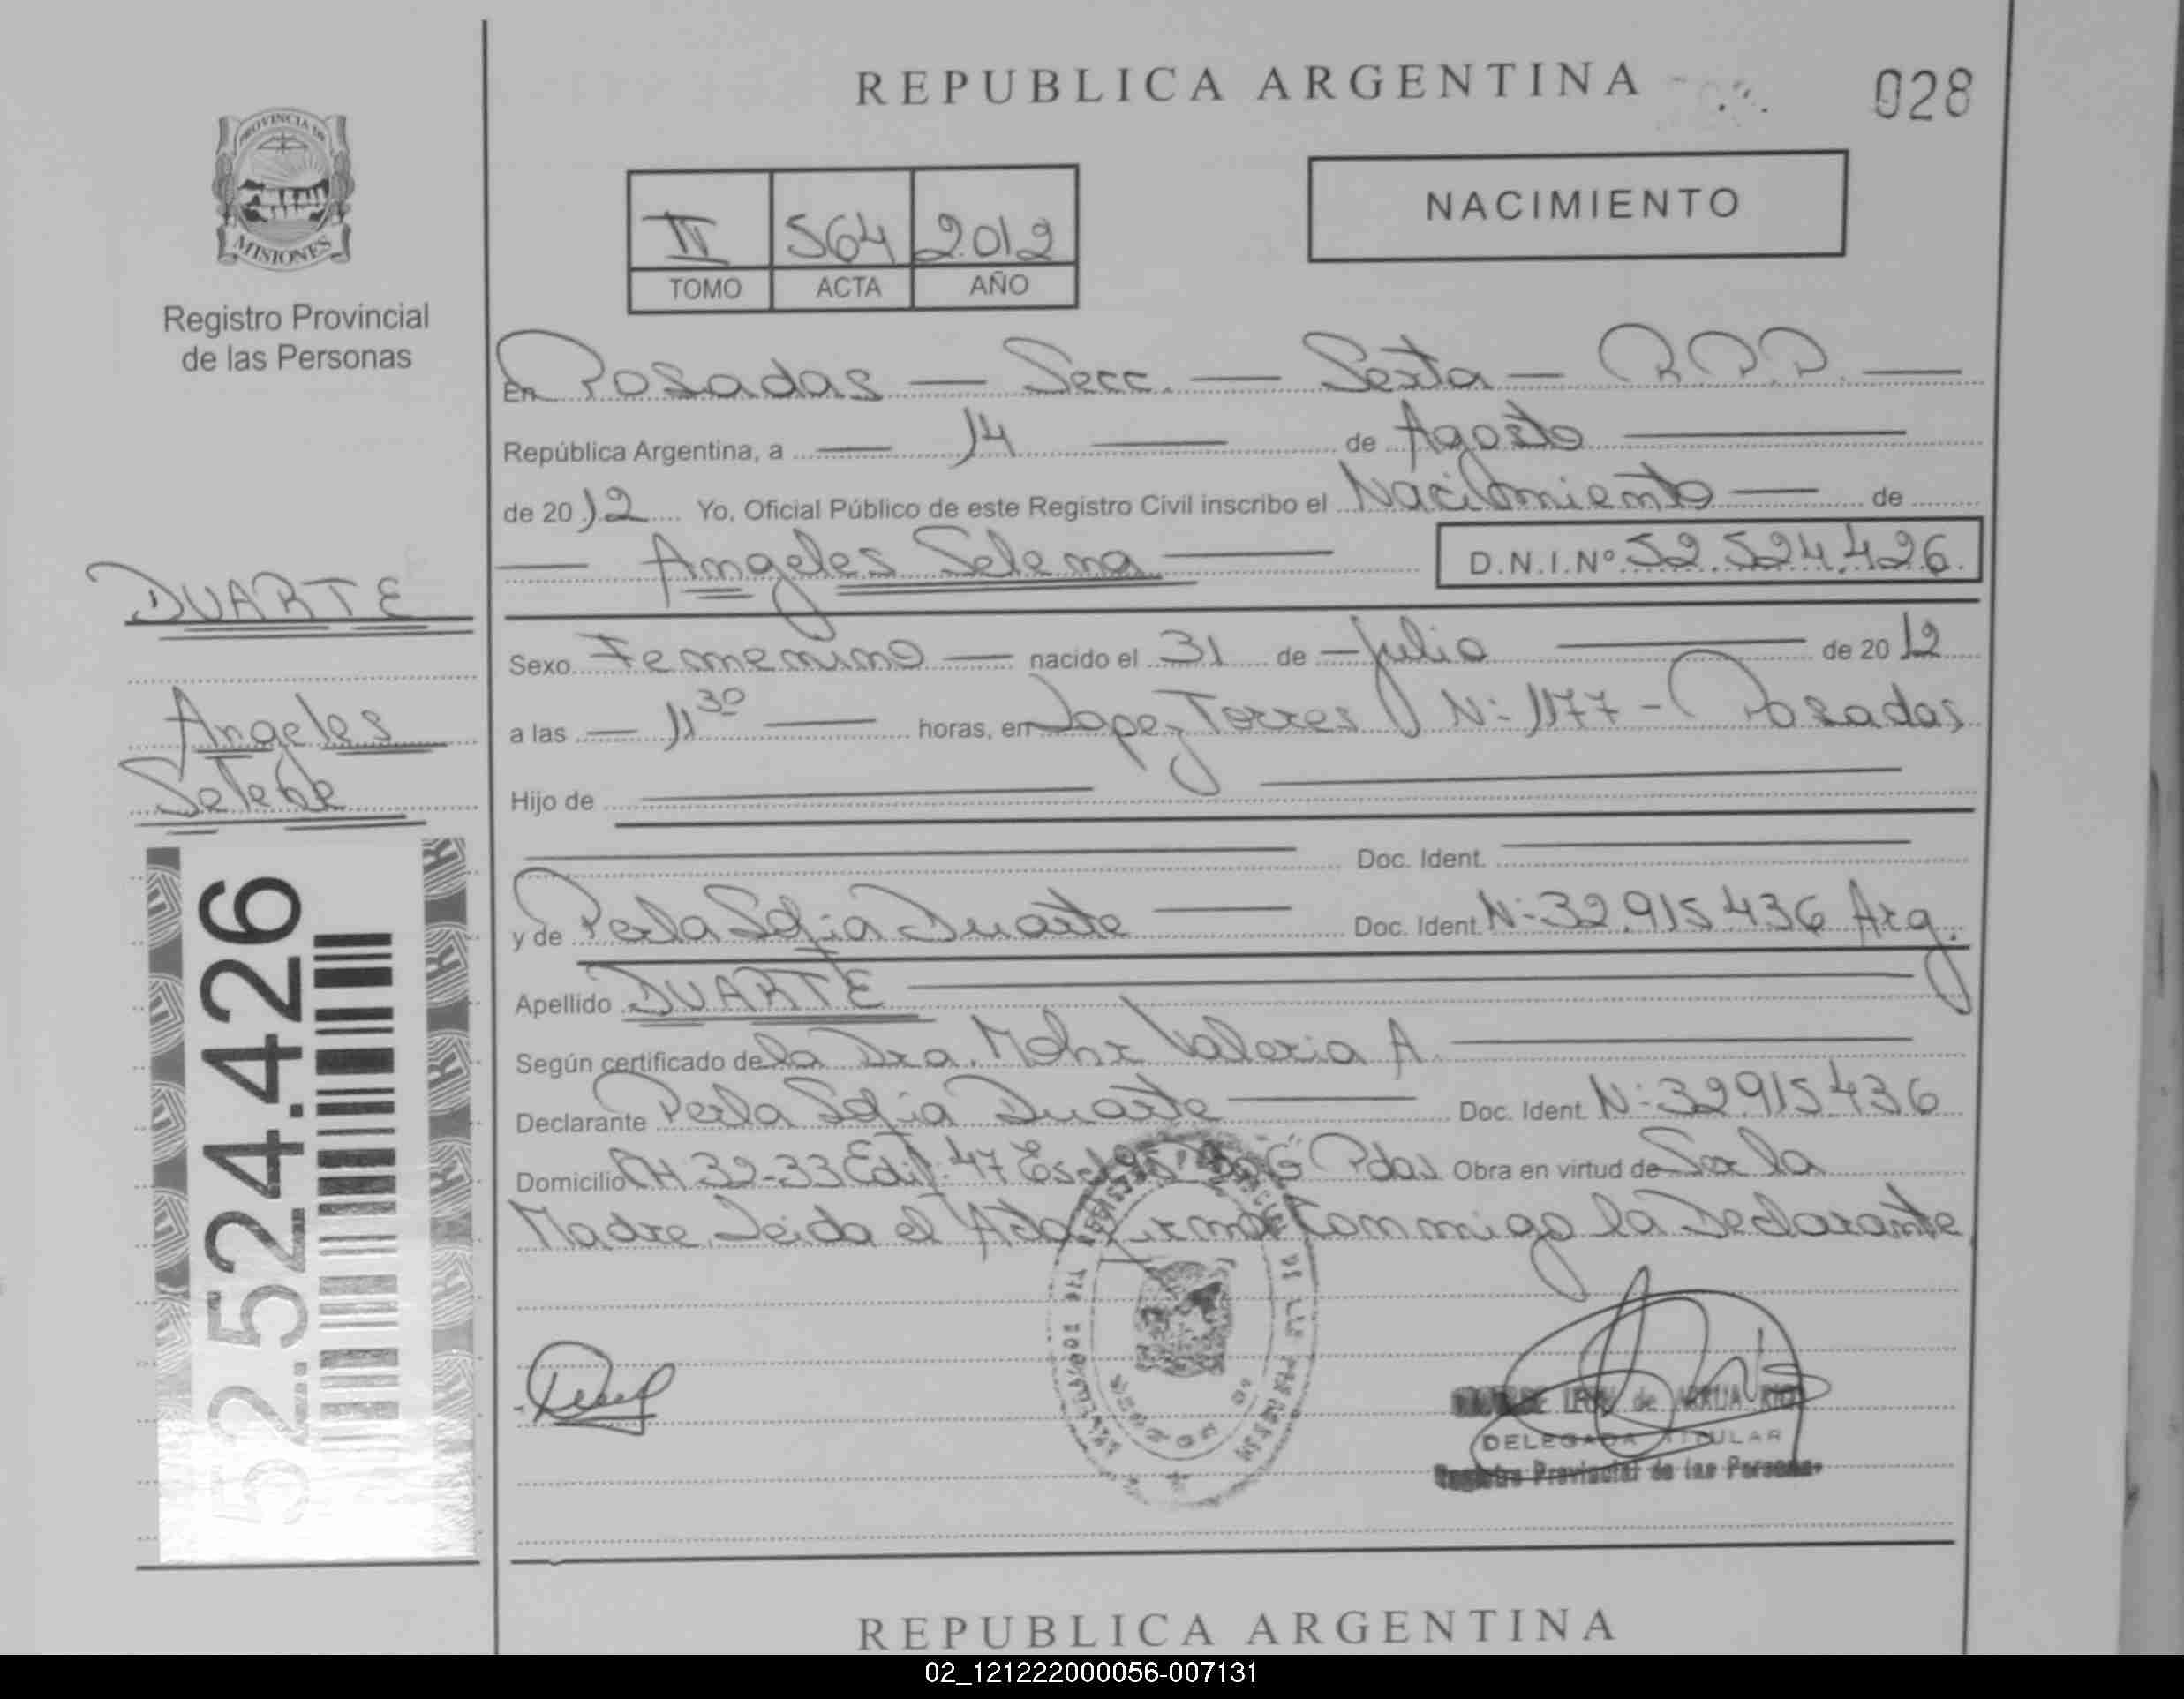 REPUBLICA ARGENTINA
028
PROVINCIA DE
MISIONES
Registro Provincial
de las Personas
II 564 2012
TOMO ACTA AÑO
NACIMIENTO
En Posadas — Secc. — Sexta — R.P.P. —
República Argentina, a — 14 — de Agosto —
de 2012 Yo, Oficial Público de este Registro Civil inscribo el Nacimiento — de
— Angeles Selena — D.N.I.Nº 52.524.426.
DUARTE
Angeles
Sexo Femenino — nacido el 31 de — Julio — de 2012
a las — 11 30 — horas, en Lopez Torres N: 1177 - Posadas
Hijo de
Doc. Ident.
y de Perla Sofia Duarte — Doc. Ident. N: 32.915.436 Arg.
Apellido DUARTE
Según certificado de la Dra. Mohr Valeria A.
Declarante Perla Sofia Duarte — Doc. Ident. N: 32915436
Domicilio CH 32-33 Edif. 47 Pdas Obra en virtud de Ser la
Madre Leida el Acta Firma Conmigo la Declarante
52.524.426
DELEGADA TITULAR
Registro Provincial de las Personas
REPUBLICA ARGENTINA
02_121222000056-007131